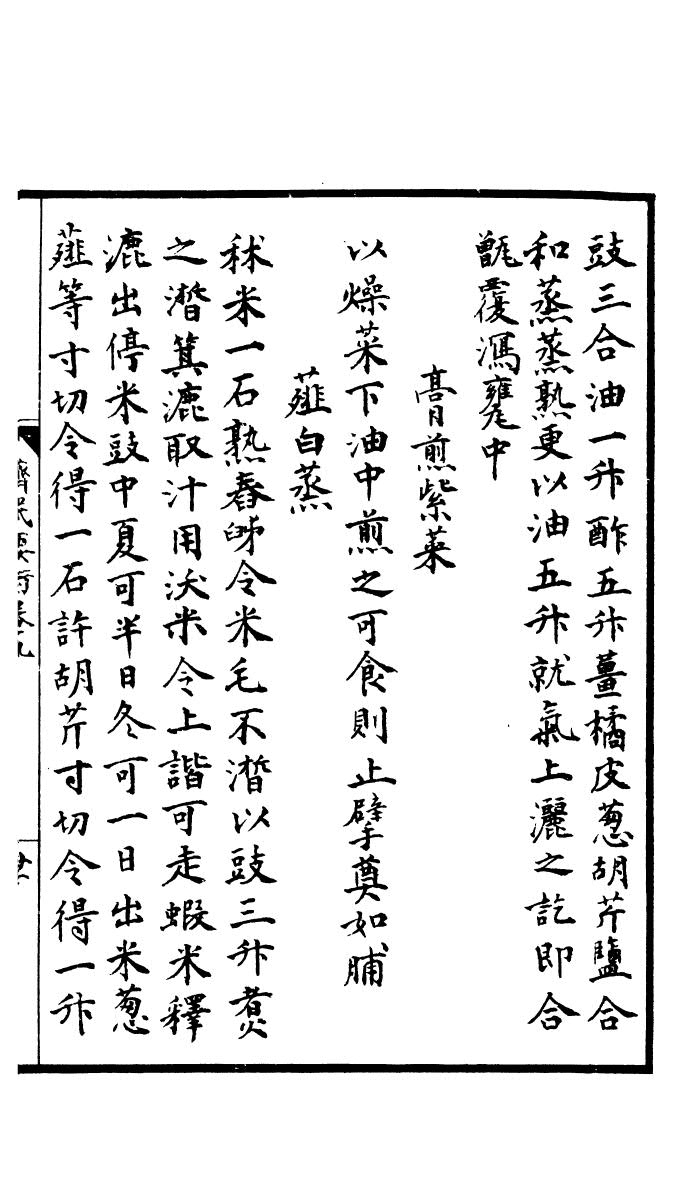 豉三合油一升酢五升薑橘皮葱胡芹鹽合
和蒸蒸熟更以油五升就氣上灑之訖即合
甑覆瀉甕中
膏煎紫菜
以燥菜下油中煎之可食則止擘奠如脯
薤白蒸
秫米一石熟舂令米毛不潜以豉三升煮
之潜箕漉取汁用沃米令上諧可走蝦米釋
漉出停米豉中夏可半日冬可一日出米葱
薤等寸切令得一石許胡芹寸切令得一升
齊民要術卷九